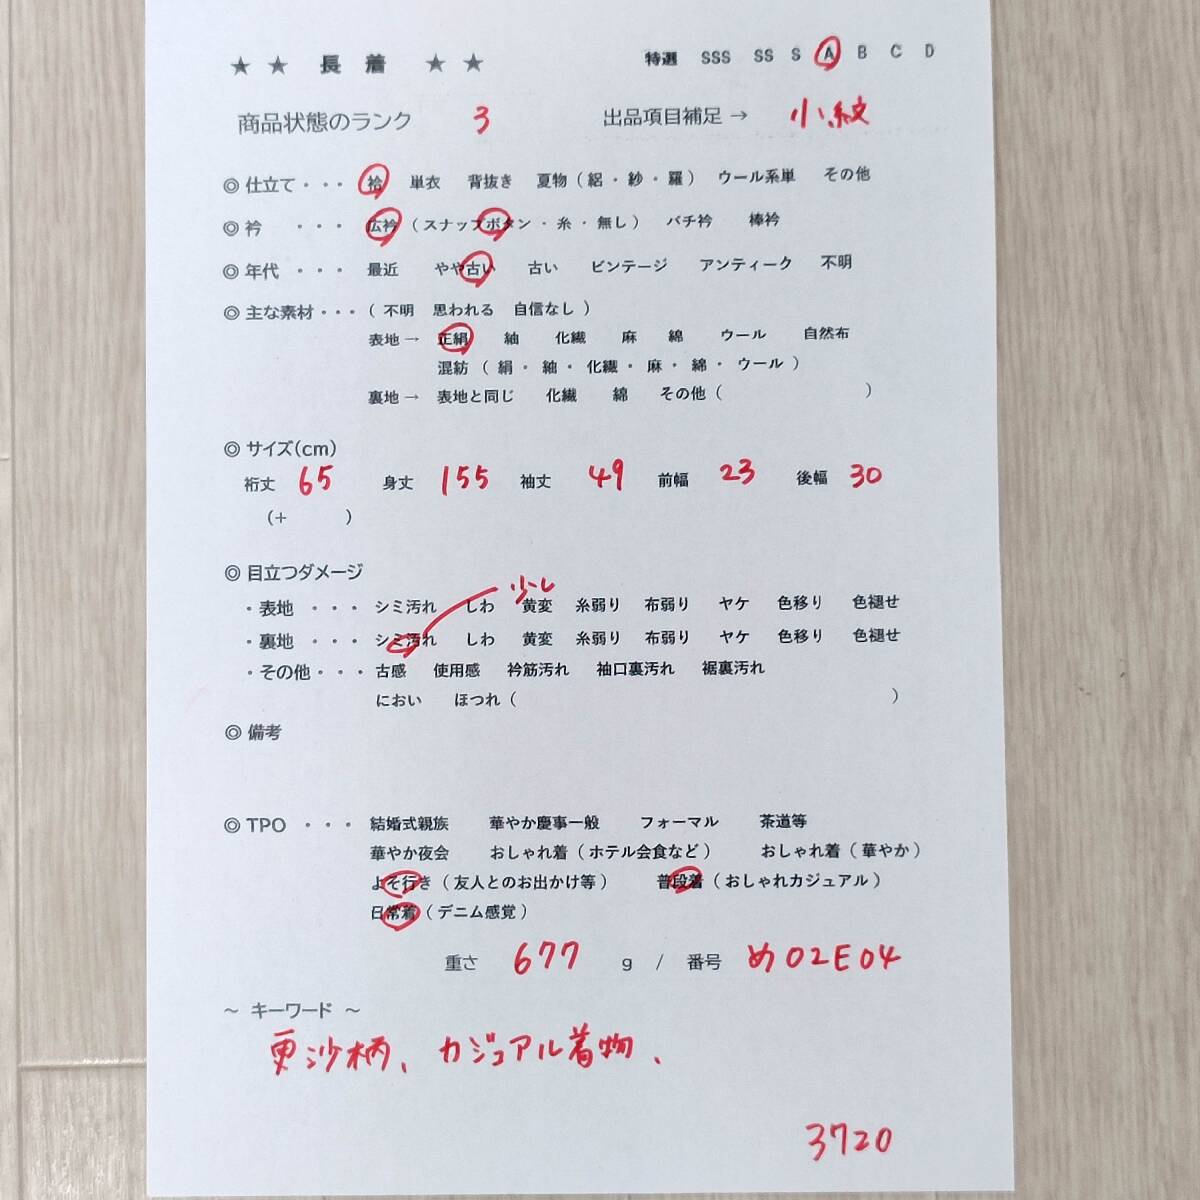 ★ ★ 長 着 ★ ★ 特選 SSS SS S A B C D
商品状態のランク 3 出品項目補足 → 小紋
◎ 仕立て・・・ 袷 単衣 背抜き 夏物 ( 絽 ・ 紗 ・ 羅 ) ウール系単 その他
◎ 衿 ・・・ 広衿 ( スナップボタン ・ 糸 ・ 無し ) バチ衿 棒衿
◎ 年代 ・・・ 最近 やや古い 古い ビンテージ アンティーク 不明
◎ 主な素材・・・ ( 不明 思われる 自信なし )
表地 → 正絹 紬 化繊 麻 綿 ウール 自然布
混紡 ( 絹 ・ 紬 ・ 化繊 ・ 麻 ・ 綿 ・ ウール )
裏地 → 表地と同じ 化繊 綿 その他 ( )
◎ サイズ(cm)
裄丈 65 身丈 155 袖丈 49 前幅 23 後幅 30
(+ )
◎ 目立つダメージ
少し
・表地 ・・・ シミ汚れ しわ 黄変 糸弱り 布弱り ヤケ 色移り 色褪せ
・裏地 ・・・ シミ汚れ しわ 黄変 糸弱り 布弱り ヤケ 色移り 色褪せ
・その他・・・ 古感 使用感 衿筋汚れ 袖口裏汚れ 裾裏汚れ
におい ほつれ ( )
◎ 備考
◎ TPO ・・・ 結婚式親族 華やか慶事一般 フォーマル 茶道等
華やか夜会 おしゃれ着 ( ホテル会食など ) おしゃれ着 ( 華やか )
よそ行き ( 友人とのお出かけ等 ) 普段着 ( おしゃれカジュアル )
日常着 ( デニム感覚 )
重さ 677 g / 番号 め02E04
～ キーワード ～
更沙柄、カジュアル着物、
3720